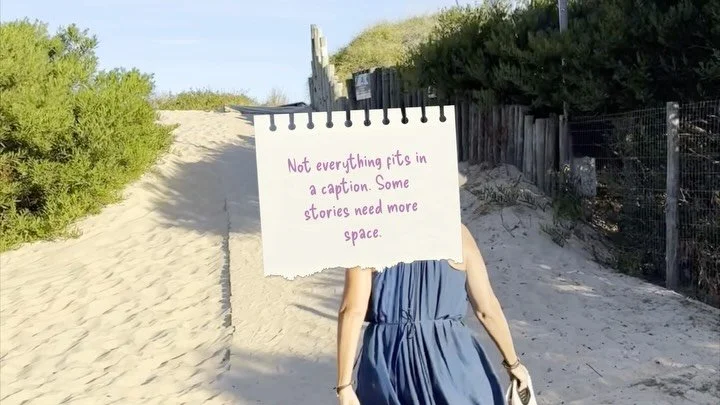 Not everything fits in
a caption. Some
stories need more
space.